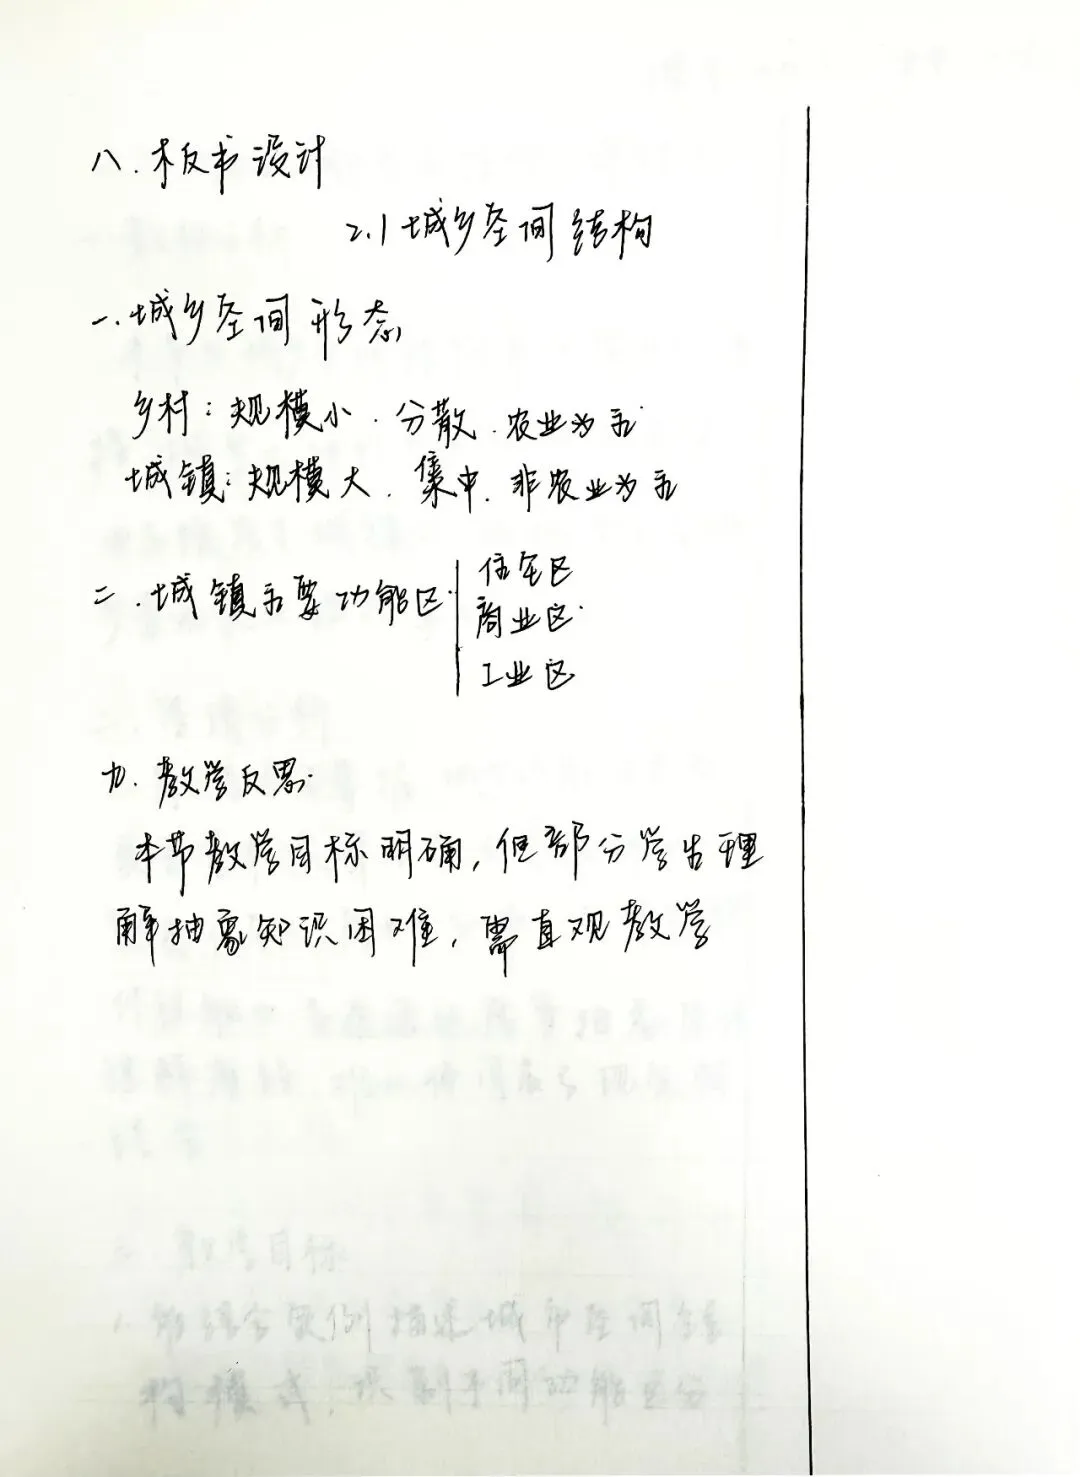 八.板书设计
2.1城乡空间结构
一.城乡空间形态
乡村：规模小.分散.农业为主
城镇：规模大.集中.非农业为主
二.城镇主要功能区
住宅区
商业区
工业区
九.教学反思.
本节教学目标明确,但部分学生理
解抽象知识困难,需直观教学